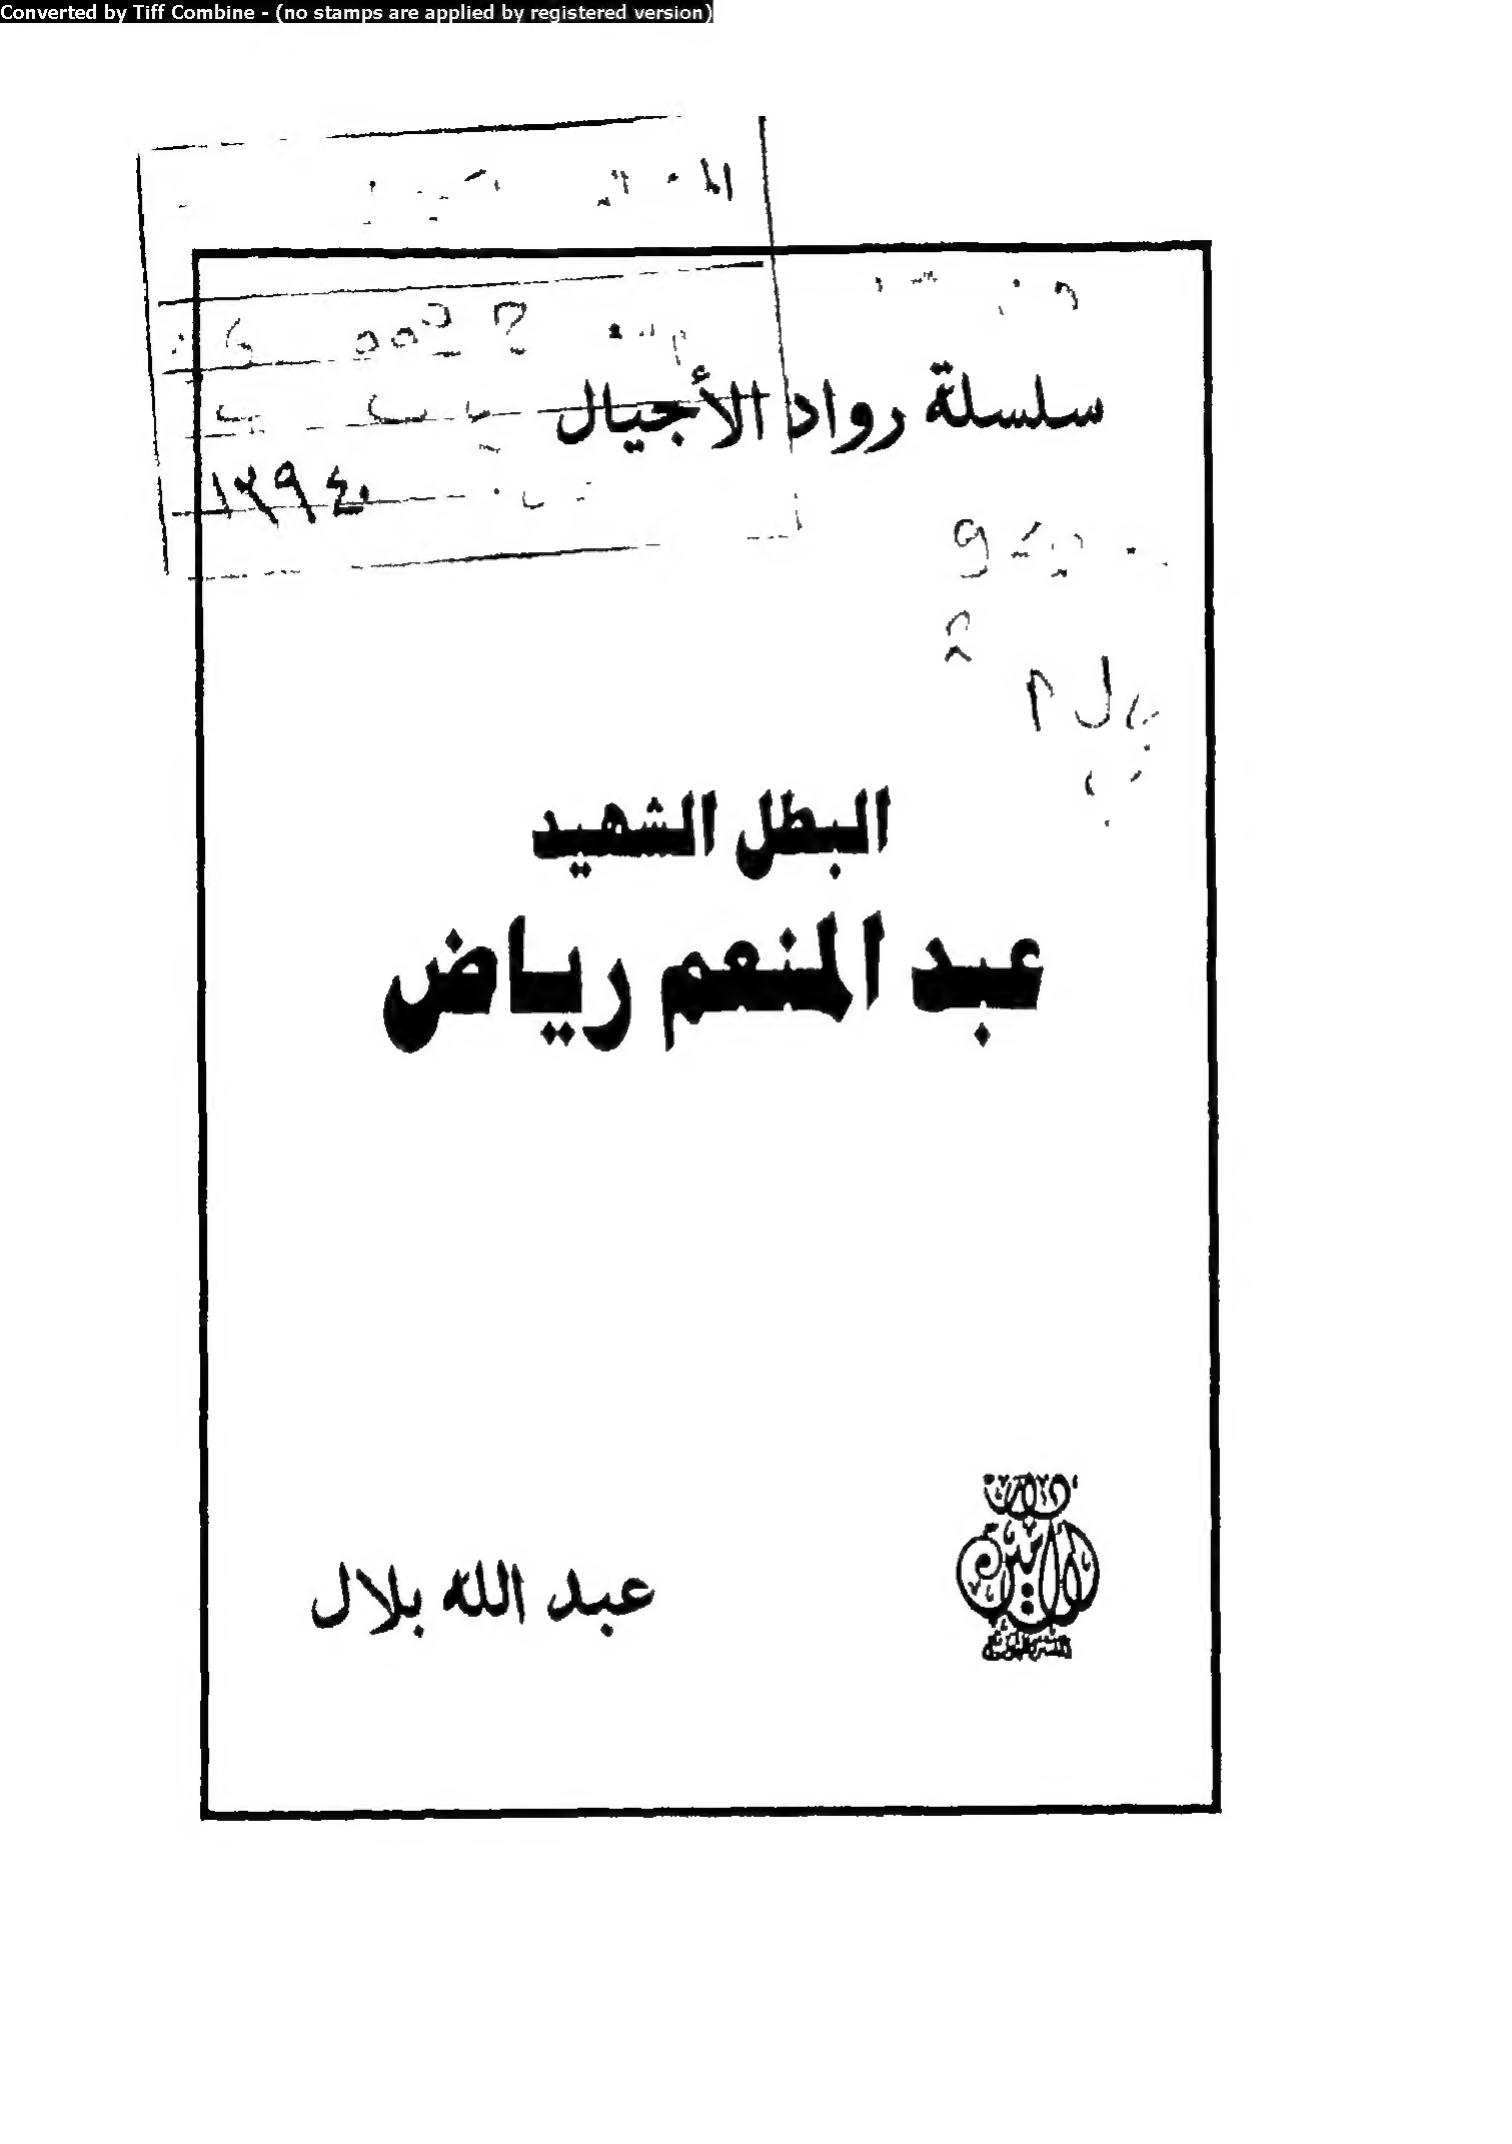 Converted by Tiff Combine - (no stamps are applied by registered version)
سلسلة رواد الأجيال
١٣٩٤٠
البطل الشهيد
عبد المنعم رياض
عبد الله بلال